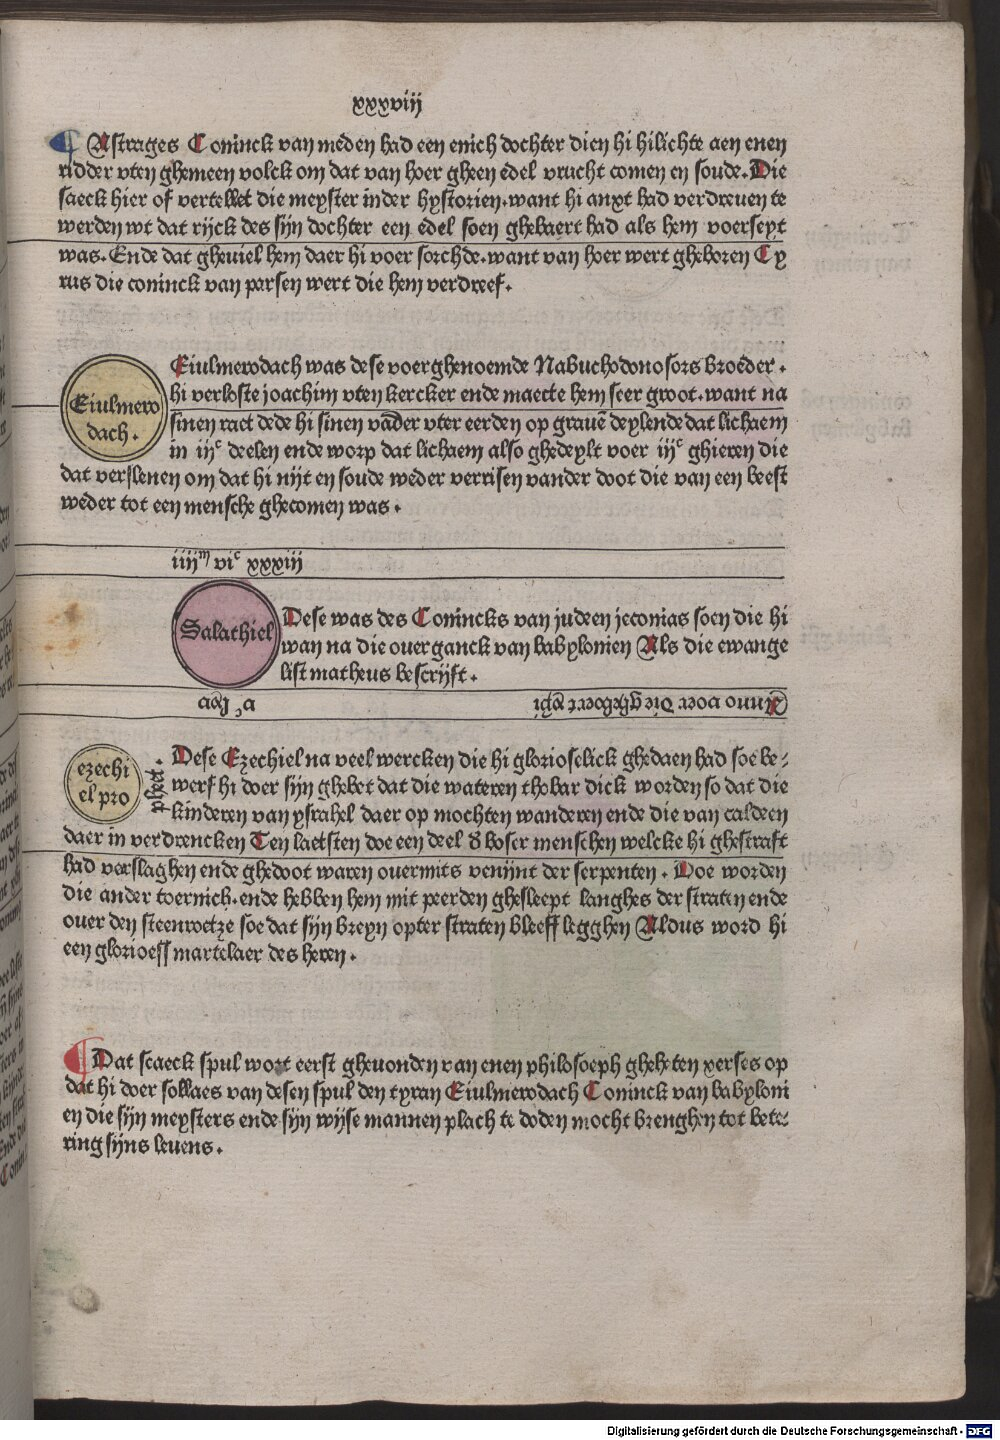 xxxviij
¶ Astrages Coninck van meden had een enich dochter dien hi hilichte aen enen
ridder vten ghemeen volck om dat van hoer gheen edel vrucht comen en soude. Die
saeck hier of vertellet die meyster inder hystorien. want hi anxt had verdreuen te
werden wt dat rijck des sijn dochter een edel soen ghebaert had als hem voerseyt
was. Ende dat gheuiel hem daer hi voer sorchde. want van hoer wert gheboren Cy
rus die coninck van parsen wert die hem verdreef.
Eiulmero
dach.
Eiulmerodach was dese voerghenoemde Nabuchodonosors broeder.
hi verloste joachim vten kercker ende maecte hem seer groot. want na
sinen raet dede hi sinen vader vter eerden op grauē deylende dat lichaem
in iijᶜ deelen ende worp dat lichaem also ghedeylt voer iijᶜ ghieren die
dat verslenen om dat hi nijt en soude weder verrisen vander doot die van een beest
weder tot een mensche ghecomen was.
iiijᵐ viᶜ xxxiij
Salathiel
Dese was des Conincks van judeen jeconias soen die hi
wan na die ouerganck van babylonien Als die ewange
list matheus bescrijft.
Anno voer die gheboert
vᶜ
ezechi
el pro
phet.
Dese Ezechiel na veel wercken die hi glorioslick ghedaen had soe be⸗
werf hi doer sijn ghebet dat die wateren thobar dick worden so dat die
kinderen van ysrahel daer op mochten wanderen ende die van caldeen
daer in verdrencken Ten laetsten doe een deel ð boser menschen welcke hi ghestraft
had verslaghen ende ghedoot waren ouermits venijnt der serpenten. Doe worden
die ander toernich. ende hebben hem mit peerden ghesleept langhes der straten ende
ouer den steenroetze soe dat sijn breyn opter straten bleeff legghen Aldus word hi
een glorioess martelaer des heren.
¶ Dat scaeck spul wort eerst gheuonden van enen philosoeph gheheten xerses op
dat hi doer sollaes van desen spul den tyran Eiulmerodach Coninck van babyloni
en die sijn meysters ende sijn wijse mannen plach te doden mocht brenghen tot bete⸗
ring sijns leuens.
Digitalisierung gefördert durch die Deutsche Forschungsgemeinschaft - DFG